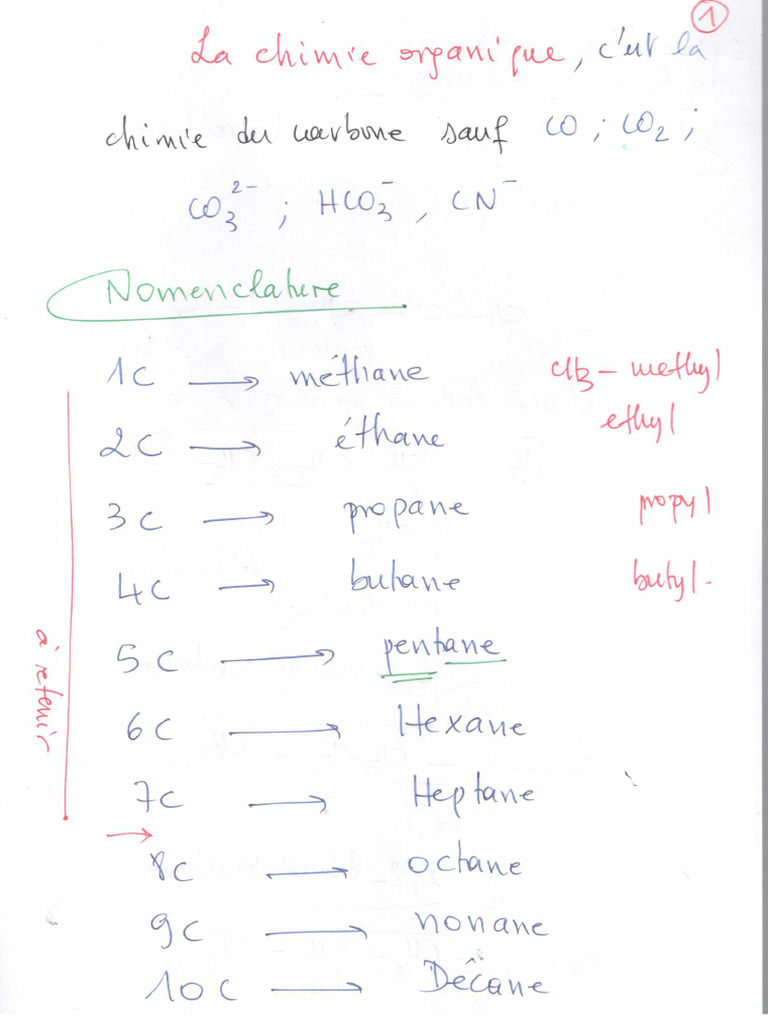 1
La chimie organique, c'est la
chimie du carbone sauf CO ; CO₂ ;
CO₃²⁻ ; HCO₃⁻ , CN⁻
Nomenclature
1C → méthane CH₃ – methyl
2C → éthane ethyl
3C → propane propyl
4C → butane butyl.
5C → pentane
6C → Hexane
7C → Heptane
à retenir
→
8C → octane
9C → nonane
10C → Décane